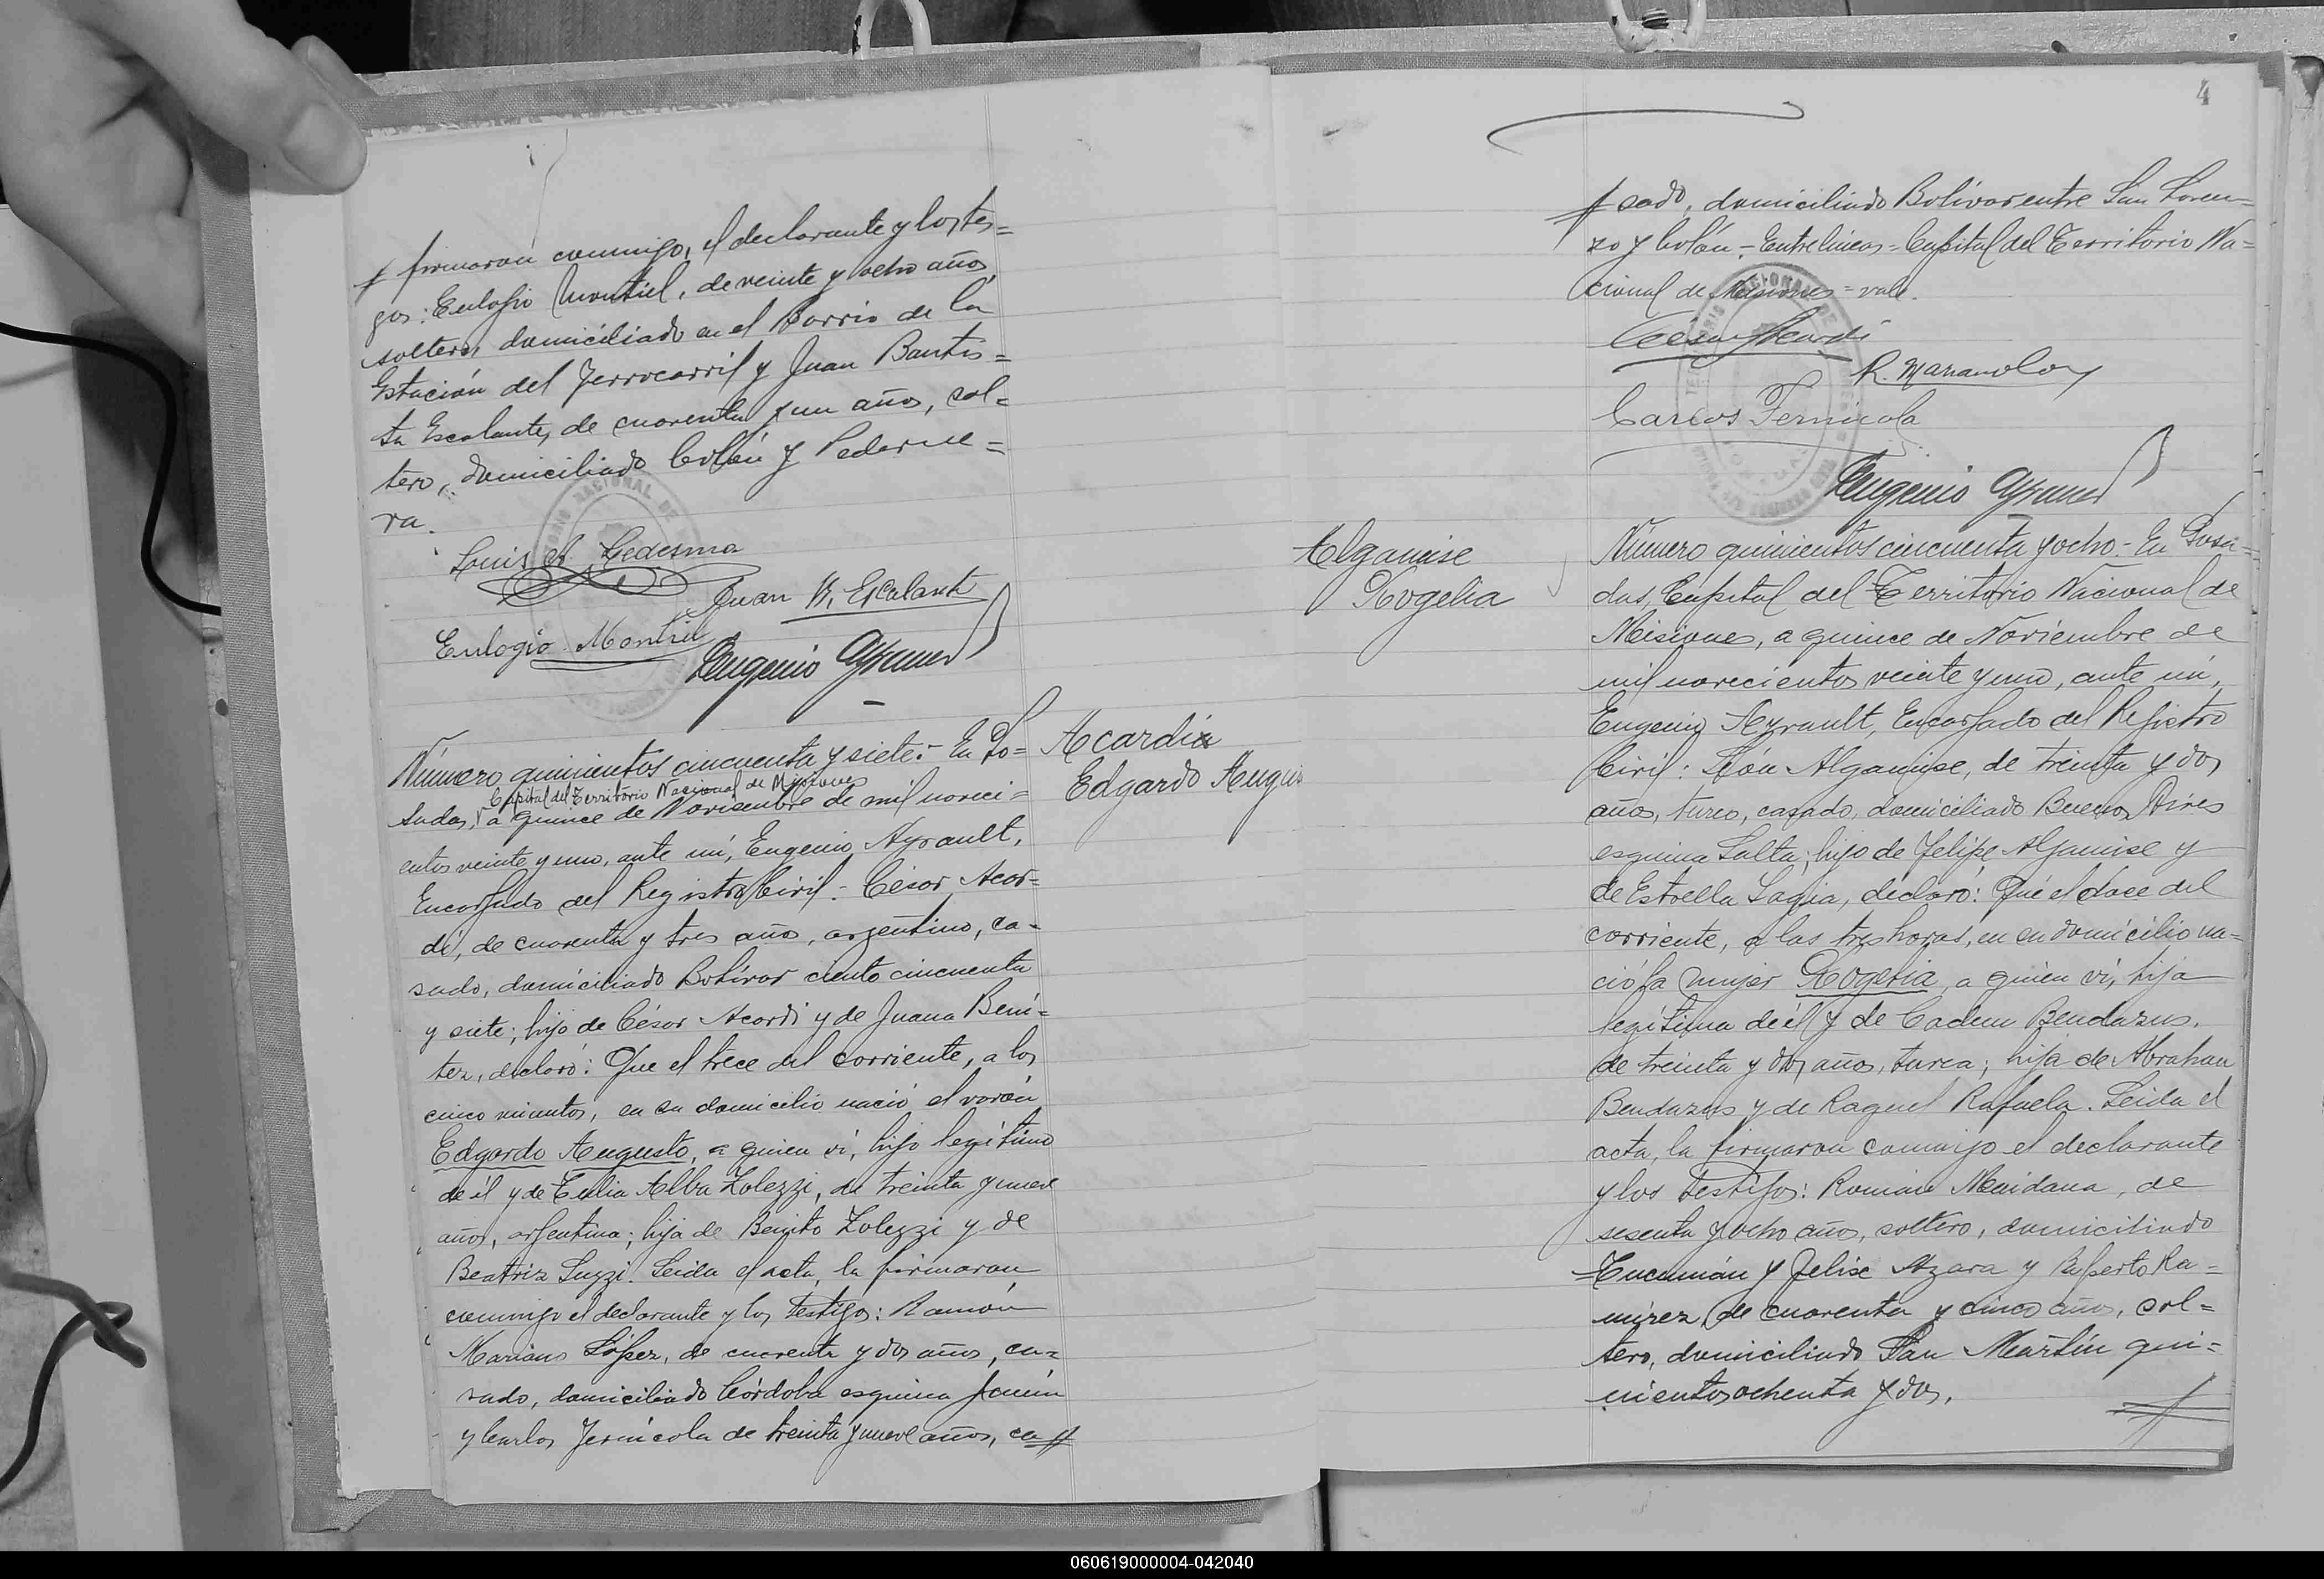 firmaron conmigo, el declarante y los tes=
gos: Eulogio Montiel, de veinte y ocho años,
soltero, domiciliado en el Barrio de la
Estación del Ferrocarril y Juan Bautis=
ta Escalante, de cuarenta y un años, sol=
tero, domiciliado Colón y Pederne=
ra.
Luis A. Ledesma
Juan B. Escalante
Eulogio Montiel
Eugenio Ayrault
Acardi
Edgardo Augus
Número quinientos cincuenta y siete:- En Po=
Capital del Territorio Nacional de Misiones
sadas, a quince de Noviembre de mil noveci=
entos veinte y uno, ante mí, Eugenio Ayrault,
Encargado del Registro Civil:- César Acar=
di, de cuarenta y tres años, argentino, ca=
sado, domiciliado Bolívar ciento cincuenta
y siete; hijo de César Acardi y de Juana Bení=
tez, declaró: Que el trece del corriente, a los
cinco minutos, en su domicilio nació el varón
Edgardo Augusto, a quien ví, hijo legítimo
de él y de Celia Alba Zolezzi, de treinta y nueve
años, argentina; hija de Benito Zolezzi y de
Beatriz Suzzi. Leida el acta, la firmaron
conmigo el declarante y los testigos: Ramón
Mariano López, de cuarenta y dos años, ca=
sado, domiciliado Córdoba esquina Junín
y Carlos Fernícola de treinta y nueve años, ca
4
sado, domiciliado Bolívar entre San Loren=
zo y Colón.- Entrelíneas= Capital del Territorio Na=
cional de Misiones= vale.
César Acardi
R. Mariano Lopez
Carlos Fernicola
Eugenio Ayrault
Algamise
Rogelia
Número quinientos cincuenta y ocho.- En Posa=
das, Capital del Territorio Nacional de
Misiones, a quince de Noviembre de
mil novecientos veinte y uno, ante mí,
Eugenio Ayrault, Encargado del Registro
Civil: León Algamise, de treinta y dos
años, turco, casado, domiciliado Buenos Aires
esquina Salta; hijo de Felipe Algamise y
de Estrella Sagia, declaró: Que el doce del
corriente, a las tres horas, en su domicilio na=
ció la mujer Rogelia, a quien ví, hija
legítima de él y de Cadem Bendazus,
de treinta y dos años, turca; hija de Abrahan
Bendazus y de Raquel Rafaela. Leida el
acta, la firmaron conmigo el declarante
y los testigos: Román Meridana, de
sesenta y ocho años, soltero, domiciliado
Tucumán y Félix Azara y Ruperto Ra=
mírez, de cuarenta y cinco años, sol=
tero, domiciliado San Martín qui=
nientos ochenta y dos.
060619000004-042040